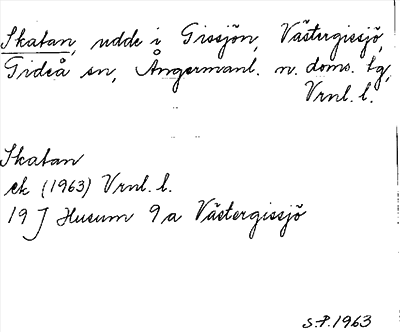 Skatan, udde i Gissjön, Västergissjö,
Gideå sn, Ångermanl. n. doms. tg,
Vrnl. l.
Skatan
ek (1963) Vrnl. l.
19 J Husum 9a Västergissjö
S.P. 1963